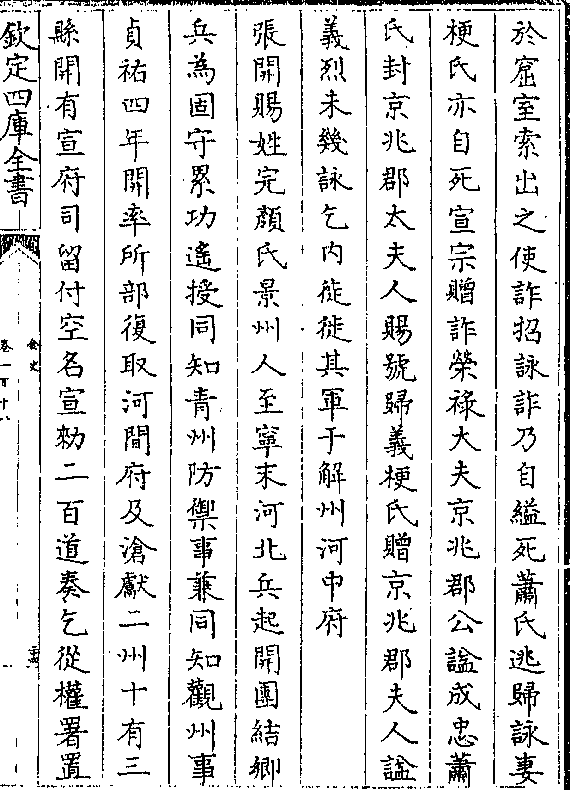 於窟室索出之使詐招詠詐乃自縊死蕭氏逃歸詠妻
梗氏亦自死宣宗贈詐榮祿大夫京兆郡公謚成忠蕭
氏封京兆郡太夫人賜號歸義梗氏贈京兆郡夫人謚
義烈未幾詠乞內徙徙其軍于解州河中府
張開賜姓完顏氏景州人至寧末河北兵起開團結鄉
兵為固守累功遙授同知青州防禦事兼同知觀州事
貞祐四年開率所部復取河間府及滄獻二州十有三
縣開有宣府司留付空名宣勑二百道奏乞從權署置
欽定四庫全書
金史
卷一百十八